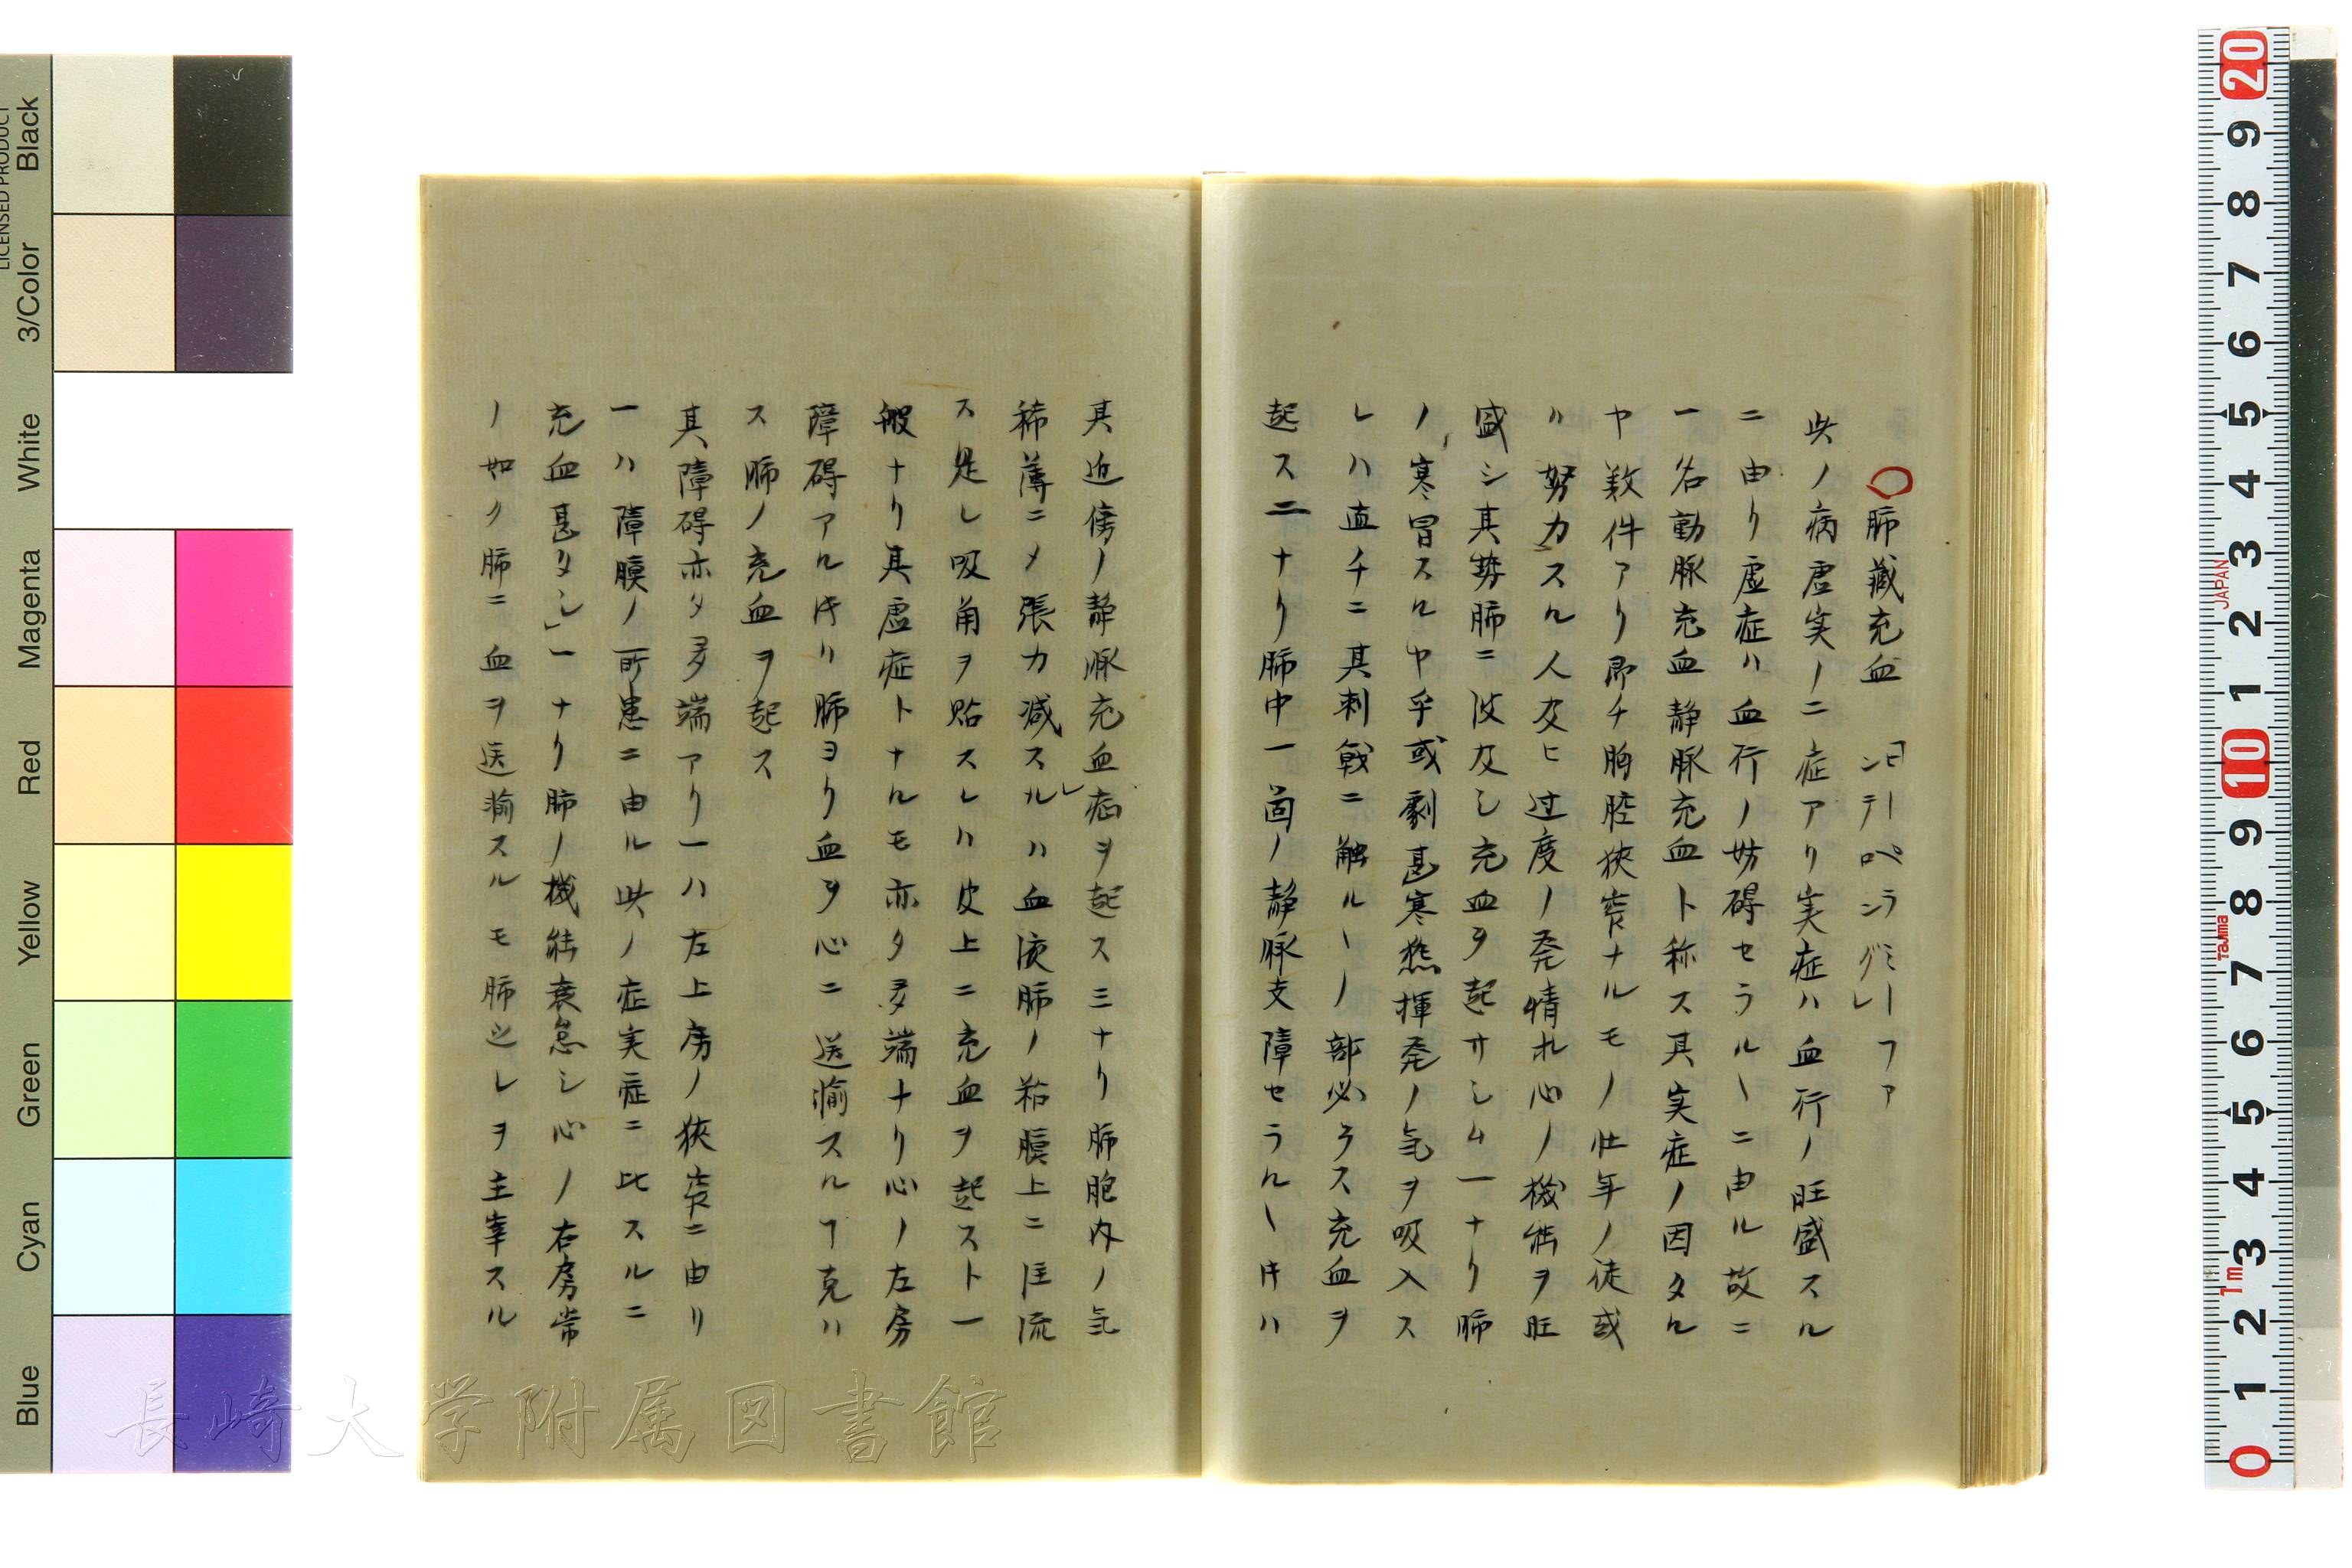 ○肺藏充血 ヒーペラミーファ
シテロンゲレ
此ノ病虚実ノ二症アリ実症ハ血行ノ旺盛スル
ニ由リ虚症ハ血行ノ妨碍セラルヿニ由ル故ニ
一名動脈充血静脈充血ト称ス其実症ノ因タル
ヤ数件アリ即チ胸腔狹窄ナルモノ壮年ノ徒或
ハ努力スル人及ヒ过度ノ発情ホレ心ノ機能ヲ旺
盛シ其勢肺ニ波及シ充血ヲ起サシム一ナリ肺
ノ寒冒スルヤ乎或劇甚寒熱揮発ノ気ヲ吸入ス
レハ直チニ其刺戟ニ触ルヽノ部必ラス充血ヲ
起ス二ナリ肺中一箇ノ静脈支障セラルヽ片ハ
其近傍ノ静脈充血症ヲ起ス三ナリ肺胞内ノ气
稀薄ニメ張力减スルレハ血液肺ノ粘膜上ニ注流
ス是レ吸角ヲ貼スレハ皮上ニ充血ヲ起スト一
般ナリ其虚症トナルモ亦タ多端ナリ心ノ左房
障碍アル片ハ肺ヨリ血ヲ心ニ送输スルヿ克ハ
ス肺ノ充血ヲ起ス
其障碍亦タ多端アリ一ハ左上房ノ狹窄ニ由リ
一ハ障膜ノ所患ニ由ル此ノ症実症ニ比スルニ
充血甚タシ」一ナリ肺ノ機能衰怠シ心ノ右房常
ノ如ク肺ニ血ヲ送输スルモ肺之レヲ主宰スル
長崎大学附属図書館
Black
3/Color
White
Magenta
Red
Yellow
Green
Cyan
Blue
LICENSED PRODUCT
20 9 8 7 6 5 4 3 2 1 10 9 8 7 6 5 4 3 2 1 0
JAPAN
Tajima
1m